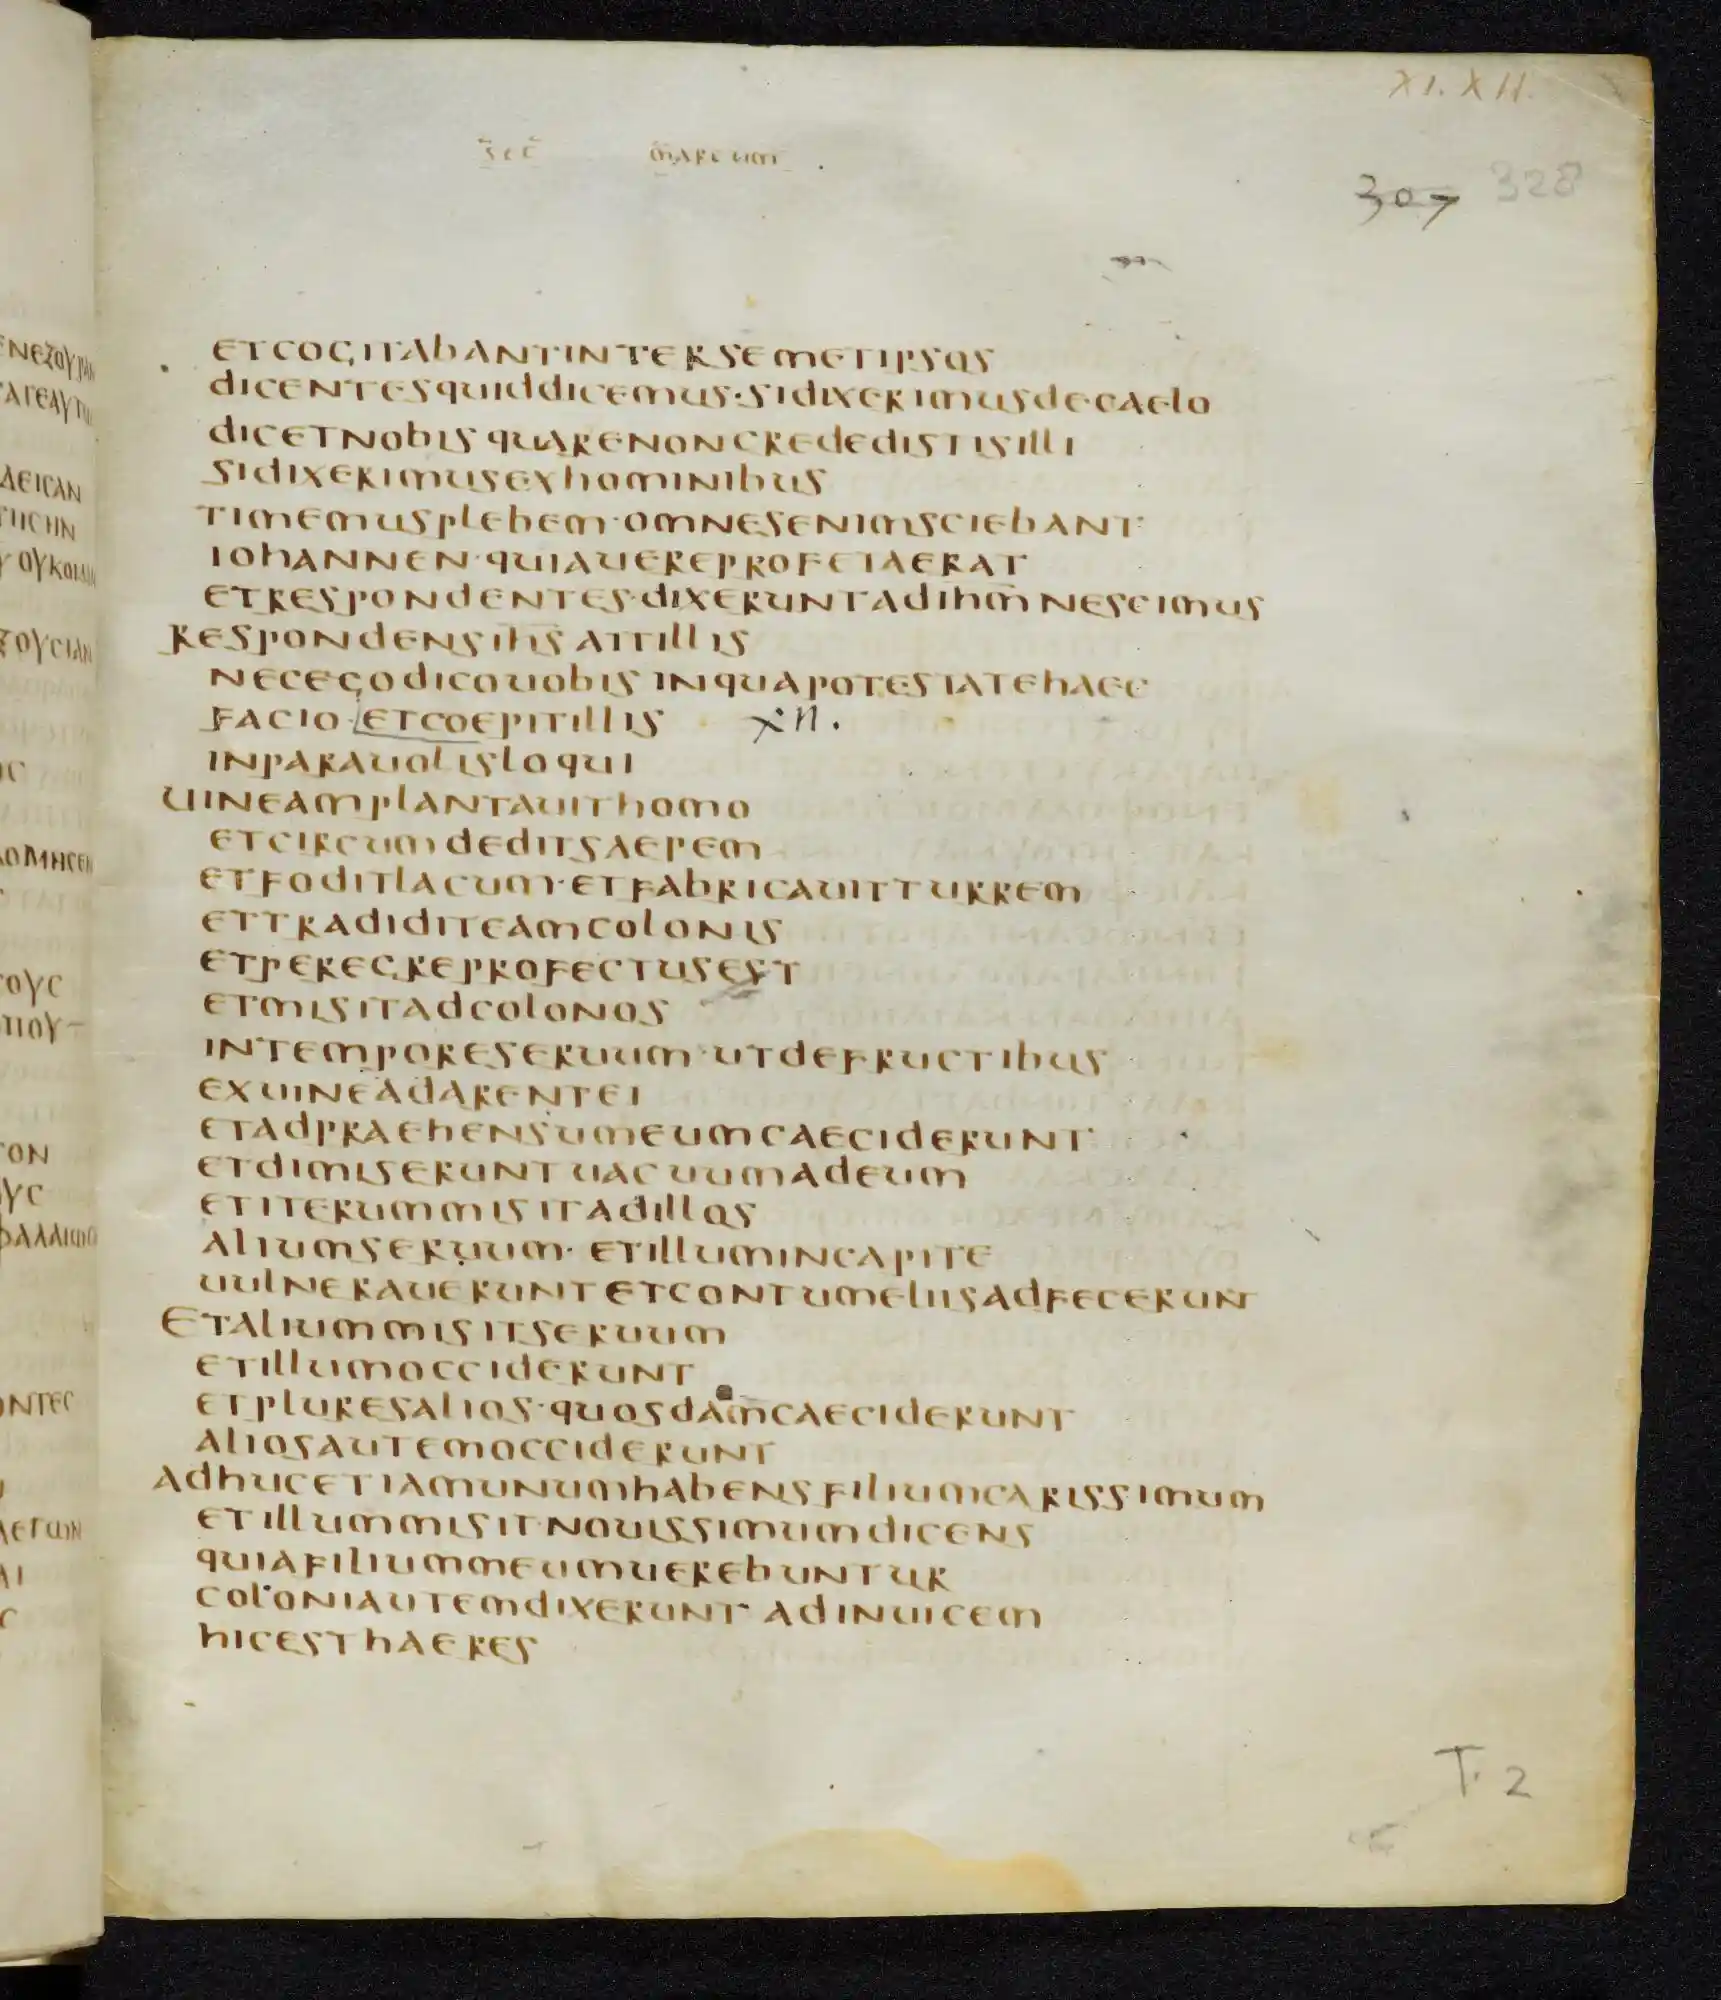 XI. XII.
sec marcum
307 328
ETCOGITABANTINTERSEMETIPSOS
DICENTESQUIDDICEMUS·SIDIXERIMUSDECAELO
DICETNOBISQUARENONCREDEDISTISILLI
SIDIXERIMUSEXHOMINIBUS
TIMEMUSPLEBEM·OMNESENIMSCIEBANT
IOHANNEN·QUIAUEREPROFETAERAT
ETRESPONDENTES·DIXERUNTADIHM̅NESCIMUS
RESPONDENSIHS̅AITILLIS
NECEGODICOUOBISINQUAPOTESTATEHAEC
FACIO·ETCOEPITILLIS XII.
INPARAUOLISLOQUI
UINEAMPLANTAUITHOMO
ETCIRCUMDEDITSAEPEM
ETFODITLACUM·ETFABRICAUITTURREM
ETTRADIDITEAMCOLONIS
ETPEREGREPROFECTUSEST
ETMISITADCOLONOS
INTEMPORESERUUM·UTDEFRUCTIBUS
EXUINEADARENTEI
ETADPRAEHENSUMEUMCAECIDERUNT
ETDIMISERUNTUACUUMADEUM
ETITERUMMISITADILLOS
ALIUMSERUUM·ETILLUMINCAPITE
UULNERAUERUNTETCONTUMELIISADFECERUNT
ETALIUMMISITSERUUM
ETILLUMOCCIDERUNT
ETPLURESALIOS·QUOSDAM̅CAECIDERUNT
ALIOSAUTEMOCCIDERUNT
ADHUCETIAMUNUMHABENSFILIUMCARISSIMUM
ETILLUMMISITNOUISSIMUMDICENS
QUIAFILIUMMEUMUEREBUNTUR
COLONIAUTEMDIXERUNTADINUICEM
HICESTHAERES
T. 2